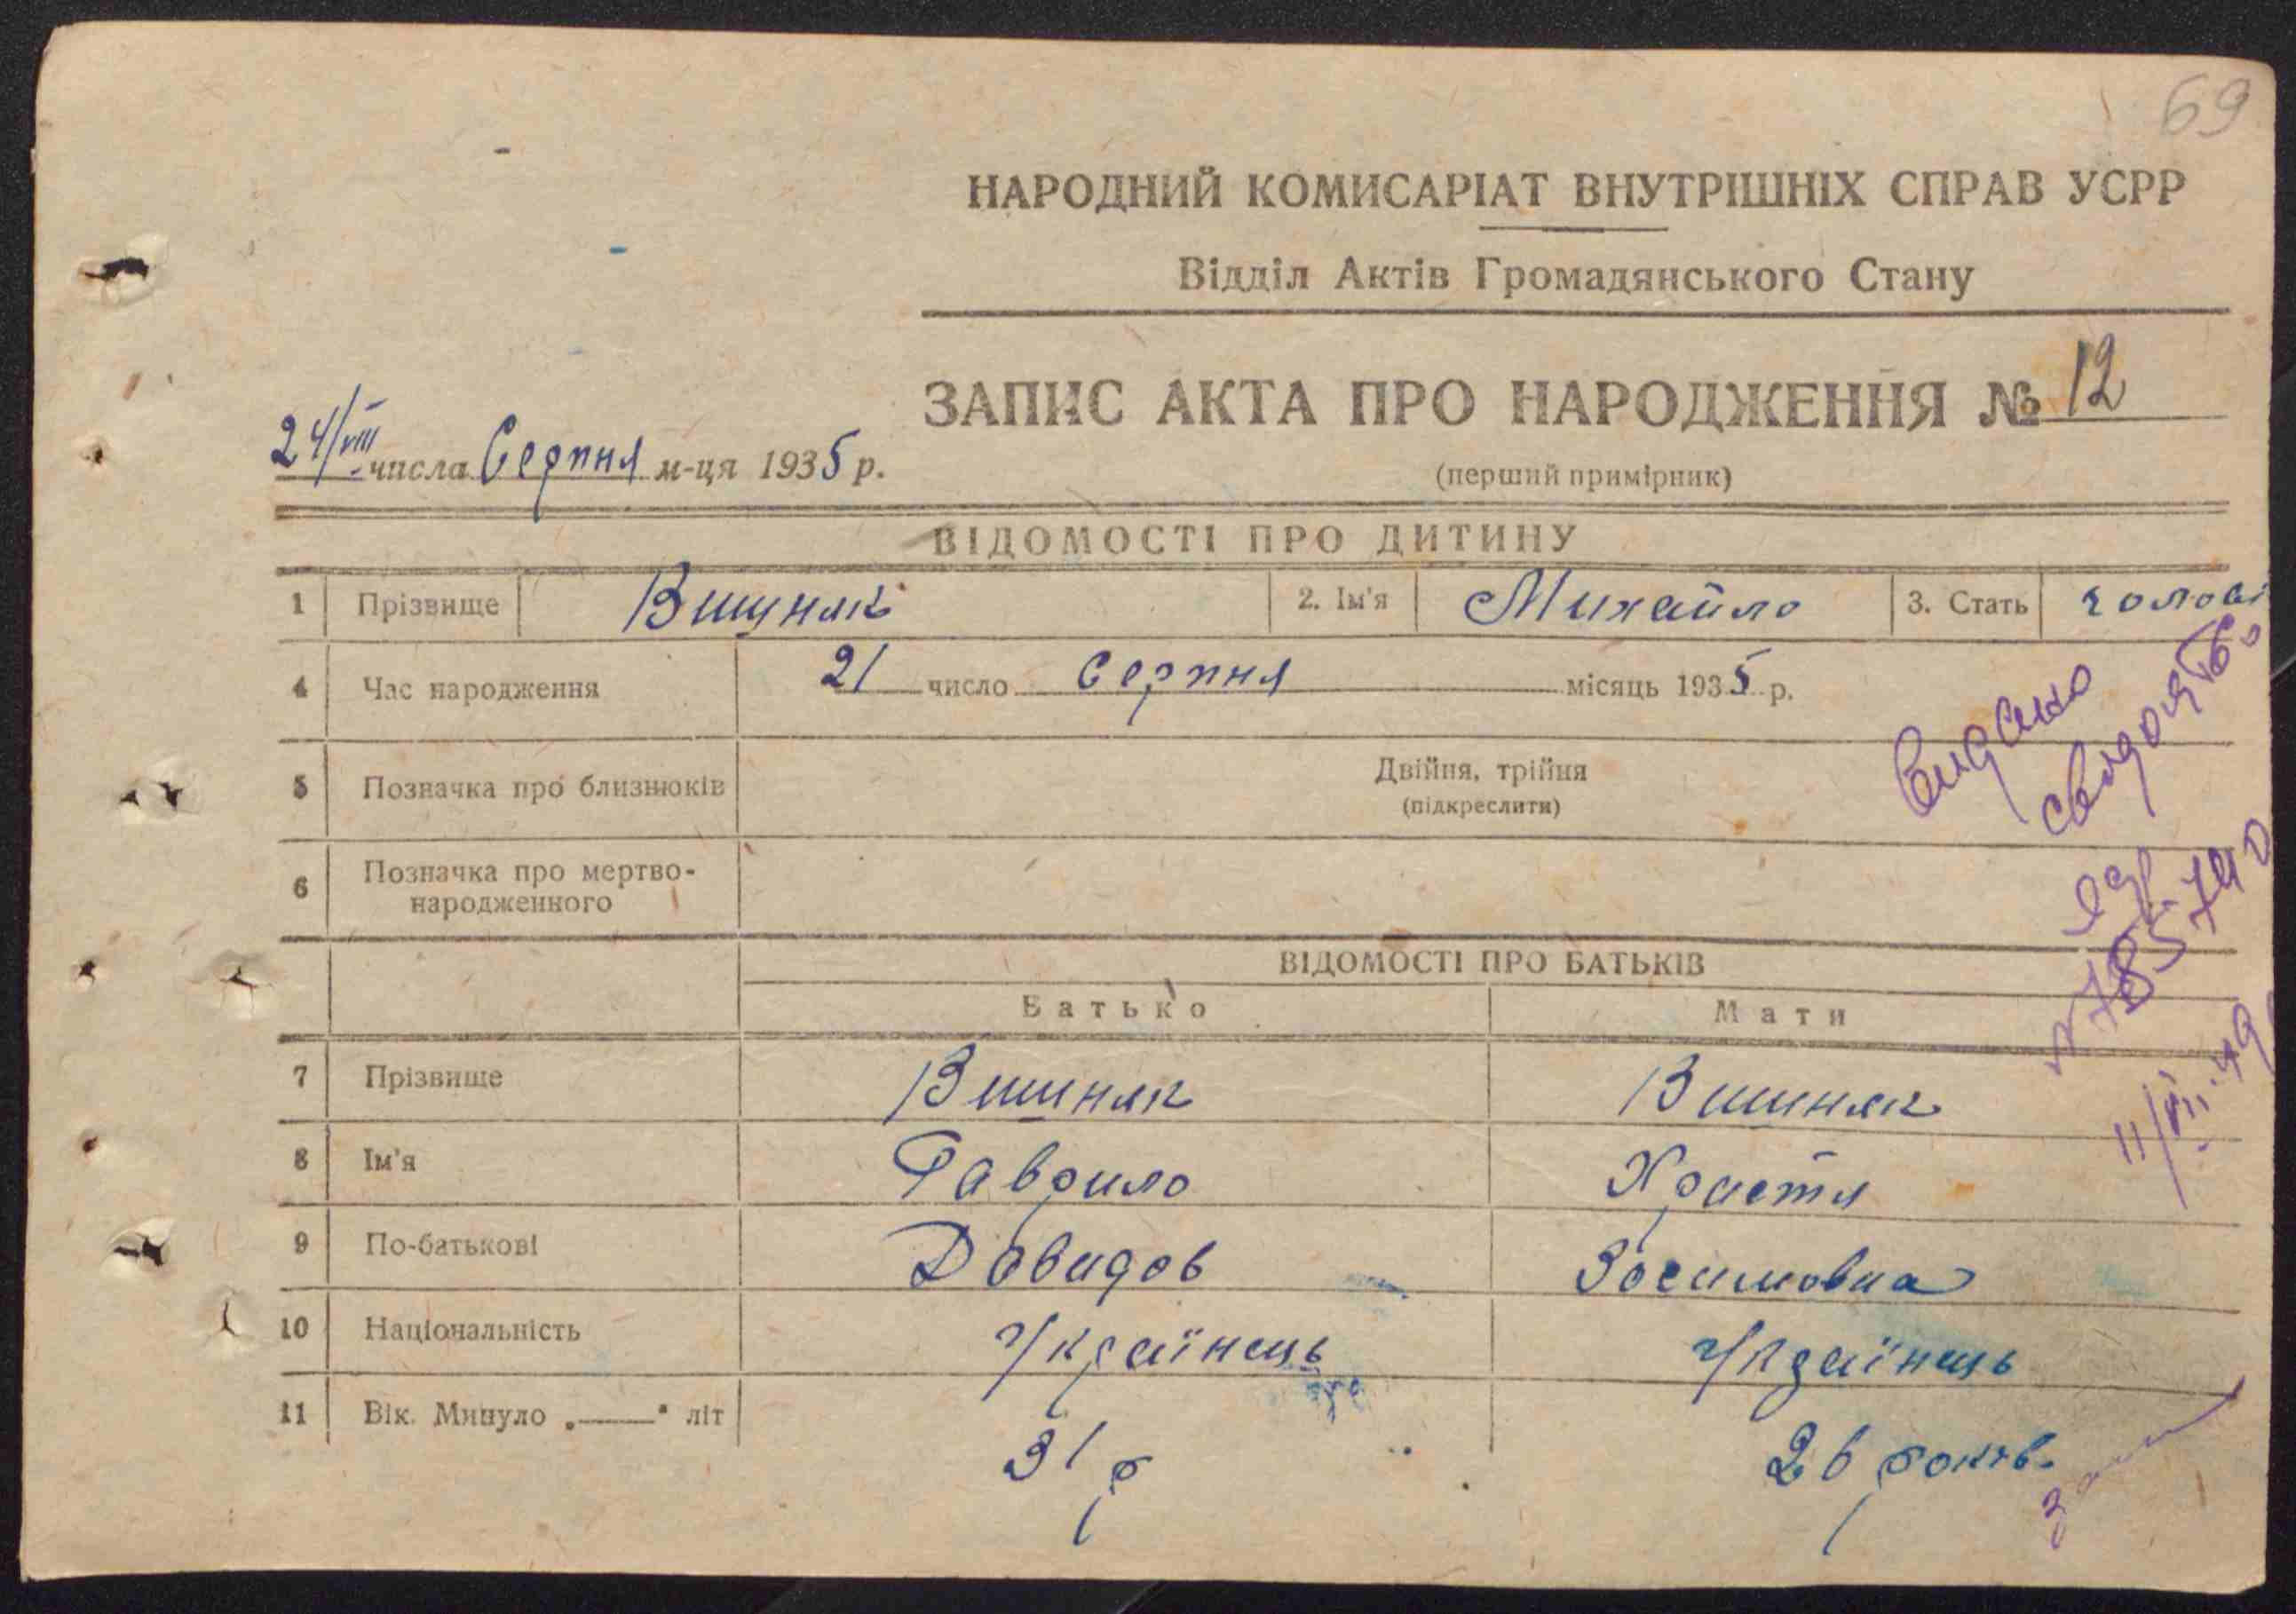 69
НАРОДНИЙ КОМИСАРІАТ ВНУТРІШНІХ СПРАВ УСРР
Відділ Актів Громадянського Стану
ЗАПИС АКТА ПРО НАРОДЖЕННЯ № 12
24/VIII числа Серпня м-ця 1935 р.
(перший примірник)
ВІДОМОСТІ ПРО ДИТИНУ
1 Прізвище Вишняк 2. Ім'я Михайло 3. Стать чолові
4 Час народження 21 число Серпня місяць 1935 р.
5 Позначка про близнюків Двійня, трійня
(підкреслити)
6 Позначка про мертво-
народженного
Видано
ВІДОМОСТІ ПРО БАТЬКІВ
Батько Мати
7 Прізвище Вишняк Вишняк
8 Ім'я Гаврило Христя
9 По-батькові Давидов Зосимовна
10 Національність Українець Українець
11 Вік. Минуло „——" літ 31 р 26 років.